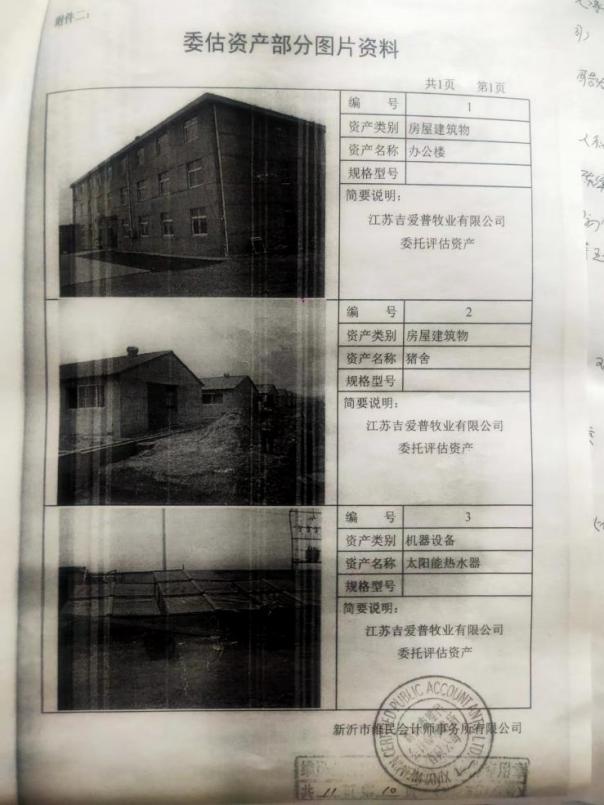 附件二：
委估资产部分图片资料
共1页 第1页
编 号 1
资产类别 房屋建筑物
资产名称 办公楼
规格型号
简要说明：
江苏吉爱普牧业有限公司
委托评估资产
编 号 2
资产类别 房屋建筑物
资产名称 猪舍
规格型号
简要说明：
江苏吉爱普牧业有限公司
委托评估资产
编 号 3
资产类别 机器设备
资产名称 太阳能热水器
规格型号
简要说明：
江苏吉爱普牧业有限公司
委托评估资产
新沂市维民会计师事务所有限公司
CERTIFIED PUBLIC ACCOUNTANT LTD